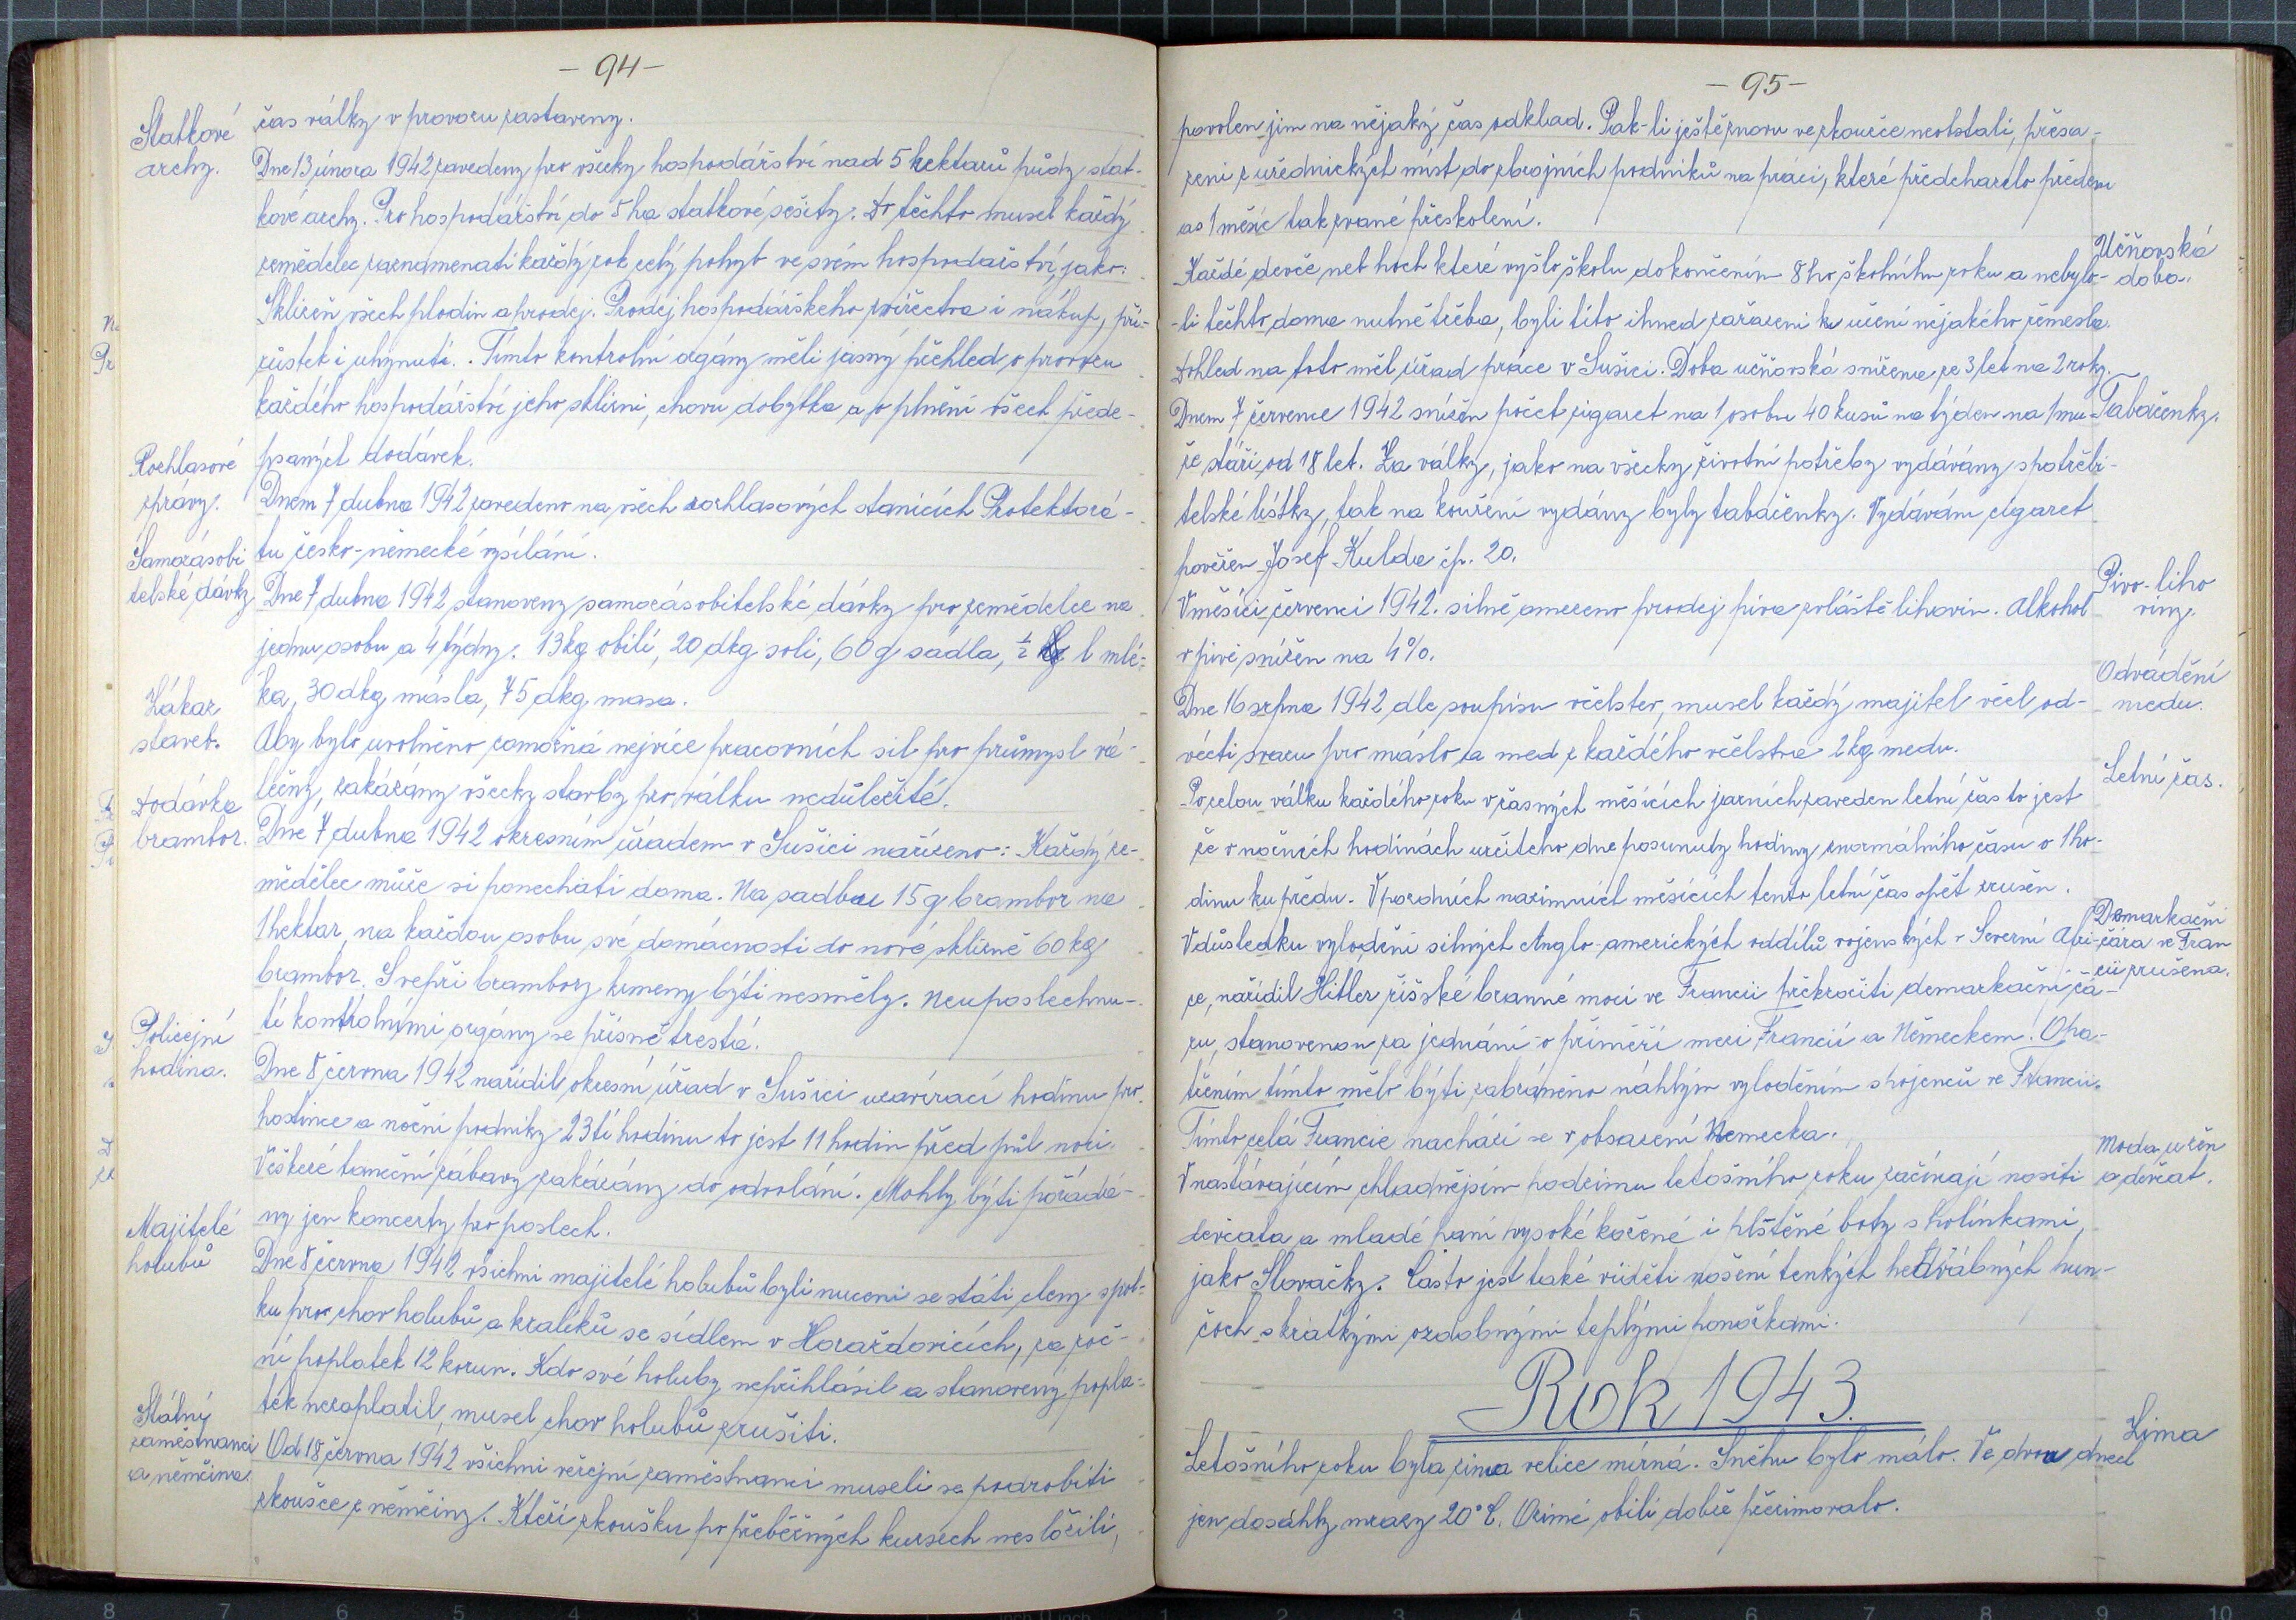 - 94 -
Statkové
archy.
čas války v provozu zastaveny.
Dne 13 února 1942 zavedeny pro všecky hospodářství nad 5 hektarů půdy stat-
kové archy. Pro hospodářství do 5 ha statkové sešity. Do těchto musel každý
zemědělec zaznamenati každý rok celý pohyb ve svém hospodářství, jako:
Sklizeň všech plodin a prodej. Prodej hospodářského zvířectva i nákup, pří-
růstek i uhynutí. Tímto kontrolní orgány měli jasný přehled o provozu
každého hospodářství jeho sklizni, chovu dobytka a o plnění všech přede-
psaných dodávek.
Rozhlasové
zprávy.
Dnem 7 dubna 1942 zavedeno na všech rozhlasových stanicích Protektorá-
tu česko-německé vysílání.
Samozásobi
telské dávky
Dne 7 dubna 1942 stanoveny samozásobitelské dávky pro zemědělce na
jednu osobu a 4 týdny. 13 kg obilí, 20 dkg soli, 60 g sádla, ½ l mlé-
ka, 30 dkg másla, 75 dkg masa.
Zákaz
staveb.
Aby bylo uvolněno zamožná nejvíce pracovních sil pro průmysl vá-
lečný, zakázány všecky stavby pro válku nedůležité.
Dodávka
brambor.
Dne 7 dubna 1942 okresním úřadem v Sušici nařízeno: Každý ze-
mědělec může si ponechati doma. Na sadbu 15 q brambor na
1 hektar, na každou osobu své domácnosti do nové sklizně 60 kg
brambor. Svepři brambory krmeny býti nesměly. Neuposlechnu-
tí kontrolními orgány se přísně trestá.
Policejní
hodina.
Dne 8 června 1942 nařídil okresní úřad v Sušici uzavírací hodinu pro
hostince a noční podniky 23tí hodinu to jest 11 hodin před půl nocí.
Veškeré taneční zábavy zakázány do odvolání. Mohly býti pořádá-
ny jen koncerty pro poslech.
Majitelé
holubů
Dne 8 června 1942 všichni majitelé holubů byli nuceni se státi členy spol-
ku pro chov holubů a králíků se sídlem v Horažďovicích, za roč-
ní poplatek 12 korun. Kdo své holuby nepřihlásil a stanovený popla-
tek nezaplatil, musel chov holubů zrušiti.
Státný
zaměstnanci
a němčina.
Od 18 června 1942 všichni veřejní zaměstnanci museli se podrobiti
zkoušce z němčiny. Kteří zkoušku po přeběčných kursech nesložili,
- 95 -
povolen jim na nějaký čas odklad. Pak-li ještě znovu ve zkoušce neobstali, přesa-
zeni z úřednických míst do zbrojních podniků na práci, které předcházelo předem
as 1 měsíc tak zvané přeskolení.
Učňovská
doba.
Každé devče neb hoch které vyšlo školu dokončením 8ho školního roku a nebylo-
-li těchto doma nutně třeba, byli tito ihned zařazeni ku učení nějakého řemesla.
Dohled na toto měl úřad práce v Sušici. Doba učňovská snížena ze 3 let na 2 roky.
Tabačenky.
Dnem 7 července 1942 snížen počet cigaret na 1 osobu 40 kusů na týden na 1 mu-
že stáří od 18 let. Za války, jako na všecky životní potřeby vydávány spotřebi-
telské lístky, tak na kouření vydány byly tabačenky. Vydávání cigaret
pověřen Josef Kulda čp. 20.
Pivo-liho
viny.
V měsíci červenci 1942. silně omezeno prodej piva zvláště lihovin. Alkohol
v pivě snížen na 4%.
Odvádění
medu.
Dne 16 srpna 1942 dle soupisu včelstev, musel každý majitel včel od-
vécti svazu pro máslo a med z každého včelstva 2 kg medu.
Letní čas.
Po celou válku každého roku v časných měsících jarních zaveden letní čas to jest
že v nočních hodinách určitého dne posunuty hodiny z normálního času o 1 ho-
dinu ku předu. V pozdních nazimních měsících tento letní čas opět zrušen.
Demarkační
čára ve Fran
cii zrušena.
V důsledku vylodění silných Anglo-amerických oddílů vojenských v Severní Afri-
ce, nařídil Hitler říšské branné moci ve Francii překročiti demarkační čá-
ru, stanovenou za jednání o příměří mezi Francií a Německem. Opa-
třením tímto mělo býti zabráněno náhlým vyloděním spojenců ve Francii.
Tímto celá Francie nachází se v obsazení Německa.
Moda u žen
a děvčat.
V nastávajícím chladnějším podzimu letošního roku začínají nositi
děvčata a mladé paní vysoké kožené i plstěné boty s holínkami,
jako Slovačky. Často jest také viděti nošení tenkých hedvábných pun-
čoch s krátkými ozdobnými teplými ponožkami.
Rok 1943.
Zima
Letošního roku byla zima velice mírná. Sněhu bylo málo. Ve dvou dnech
jen dosáhly mrazy 20°C. Ozimé obilí dobře přezimovalo.